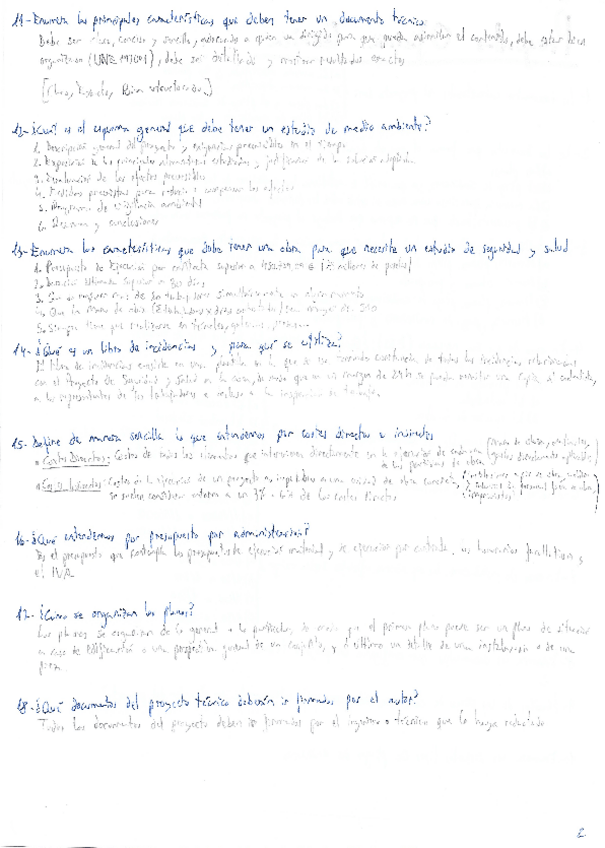 11- Enumera las principales características que deben tener un documento técnico
Debe ser claro, conciso y sencillo, a quien va dirigido para que pueda asimilar el contenido, debe estar bien
organizado (UNE 157001), debe ser detallado y resultados exactos
[Claro, Exacto, Bien estructurado.]
12- ¿Cuál es el esquema general que debe tener un estudio de medio ambiente?
1. Descripción general del proyecto y exigencias previsibles en el tiempo
2. Exposición de las principales alternativas estudiadas y justificación de la solución adoptada.
3. Evaluación de los efectos previsibles
4. Medidas previstas para reducir o compensar los efectos
5. Programa de vigilancia ambiental
6. Resumen y conclusiones
13- Enumera las características que debe tener una obra para que necesite un estudio de seguridad y salud
1. Presupuesto de Ejecución por contrata superior a
2. Duración estimada superior a 30 días
3. más de 20 trabajadores simultáneamente
4. Que la mano de obra sea mayor de 500
5. Siempre que realizarse en túneles, galerías,
14- ¿Qué es un libro de incidencias y para qué se utiliza?
El libro de incidencias consiste en una plantilla en la que se va tomando constancia de todas las incidencias relacionadas
con el Proyecto de Seguridad y Salud en la obra, de modo que en un margen de 24h se pueda remitir una copia al contratista,
a los representantes de los trabajadores e incluso a la inspección de trabajo.
15- Define de manera sencilla lo que entendemos por costes directos e indirectos
• Costes Directos: Costes de todos los elementos que intervienen directamente en la ejecución de cada una de las partidas de obra (mano de obra, materiales, gastos directamente aplicables)
• Costes Indirectos: Costes de la ejecución de un proyecto no imputables a una unidad de obra concreta,
se suelen considerar entorno a un 3% - 6% de los costes directos
16- ¿Qué entendemos por presupuesto por administración?
Es el presupuesto que contempla los presupuestos de ejecución material y de ejecución por contrata, los honorarios facultativos y
el IVA
17- ¿Cómo se organizan los planos?
Los planos se organizan de lo general a lo particular, de modo que el primer plano puede ser un plano de situación
en caso de edificación o una perspectiva general de un conjunto, y el último un detalle de una instalación o de una
pieza.
18- ¿Qué documentos del proyecto técnico deberán ir firmados por el autor?
Todos los documentos del proyecto deben ir firmados por el ingeniero o técnico que lo haya redactado
2